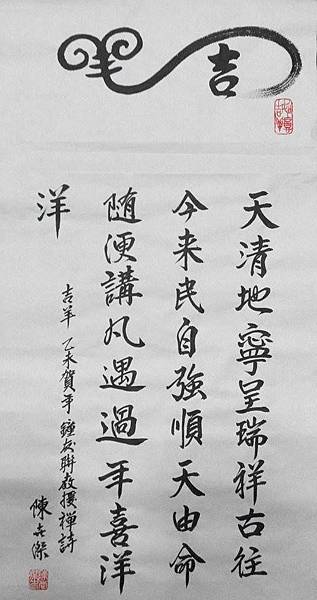 吉羊
天清地寧呈瑞祥古往
今来民自強順天由命
随便講凡遇過年喜洋
洋
吉羊 乙未賀年 鍾友聯教授禪詩
陳